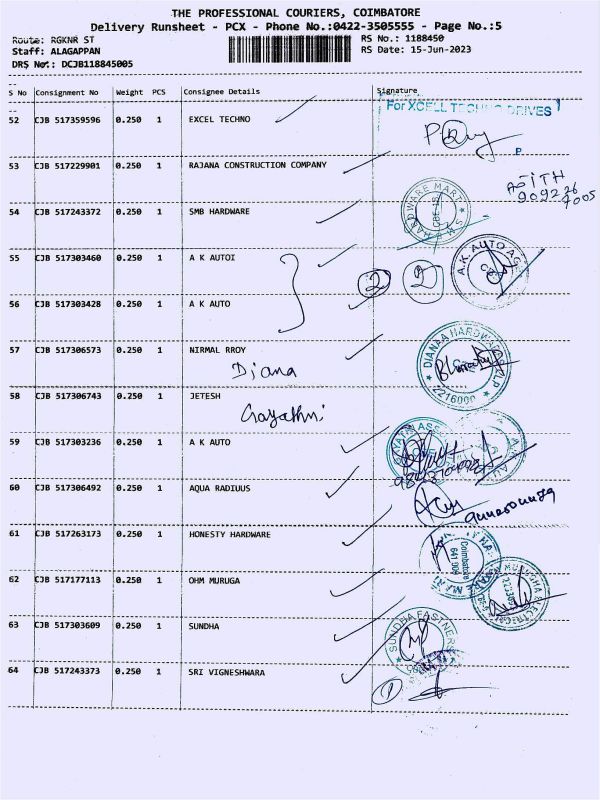 THE PROFESSIONAL COURIERS, COIMBATORE
Delivery Runsheet - PCX - Phone No.:0422-3505555 - Page No.:5
Route: RGKNR ST
RS No.: 1188450
Staff: ALAGAPPAN
RS Date: 15-Jun-2023
DRS No.: DCJB118845005
S No Consignment No Weight PCS Consignee Details Signature
52 CJB 517359596 0.250 1 EXCEL TECHNO
For XCELL TECHNO DRIVES
53 CJB 517229901 0.250 1 RAJANA CONSTRUCTION COMPANY
54 CJB 517243372 0.250 1 SMB HARDWARE
HARDWARE MART
55 CJB 517303460 0.250 1 A K AUTOI
2 2
A.K. AUTO
56 CJB 517303428 0.250 1 A K AUTO
57 CJB 517306573 0.250 1 NIRMAL RROY
Diana
DIANAA HARDWARE LLP
58 CJB 517306743 0.250 1 JETESH
Gayathri
59 CJB 517303236 0.250 1 A K AUTO
60 CJB 517306492 0.250 1 AQUA RADIUUS
61 CJB 517263173 0.250 1 HONESTY HARDWARE
Coimbatore
62 CJB 517177113 0.250 1 OHM MURUGA
63 CJB 517303609 0.250 1 SUNDHA
SUNDHA FASTNER
64 CJB 517243373 0.250 1 SRI VIGNESHWARA
1